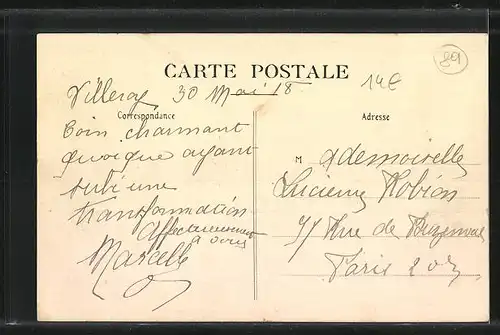 89
CARTE POSTALE
14€
Villeroy 30 Mai 18
Correspondance
Adresse
Coin charmant
quoique ayant
subi une
transformation
Affectueusement
à vous
Marcelle
Mademoiselle
Lucienne Robion
Rue de Buzenval
Paris 20e